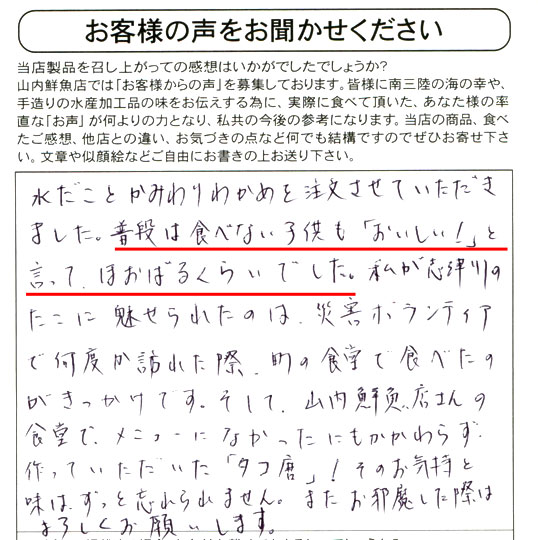 お客様の声をお聞かせください
当店製品を召し上がっての感想はいかがでしたでしょうか?
山内鮮魚店では「お客様からの声」を募集しております。皆様に南三陸の海の幸や、
手造りの水産加工品の味をお伝えする為に、実際に食べて頂いた、あなた様の率
直な「お声」が何よりの力となり、私共の今後の参考になります。当店の商品、食べ
たご感想、他店との違い、お気づきの点など何でも結構ですのでぜひお寄せ下さ
い。文章や似顔絵などご自由にお書きの上お送り下さい。
水だことかみわりわかめを注文させていただき
ました。普段は食べない子供も「おいしい!」と
言って、ほおばるくらいでした。私が志津川の
たこに魅せられたのは、災害ボランティア
で何度か訪れた際、町の食堂で食べたの
がきっかけです。そして、山内鮮魚店さんの
食堂で、メニューになかったにもかかわらず、
作っていただいた「タコ唐」!そのお気持と
味は、ずっと忘れられません。またお邪魔した際は
よろしくお願いします。